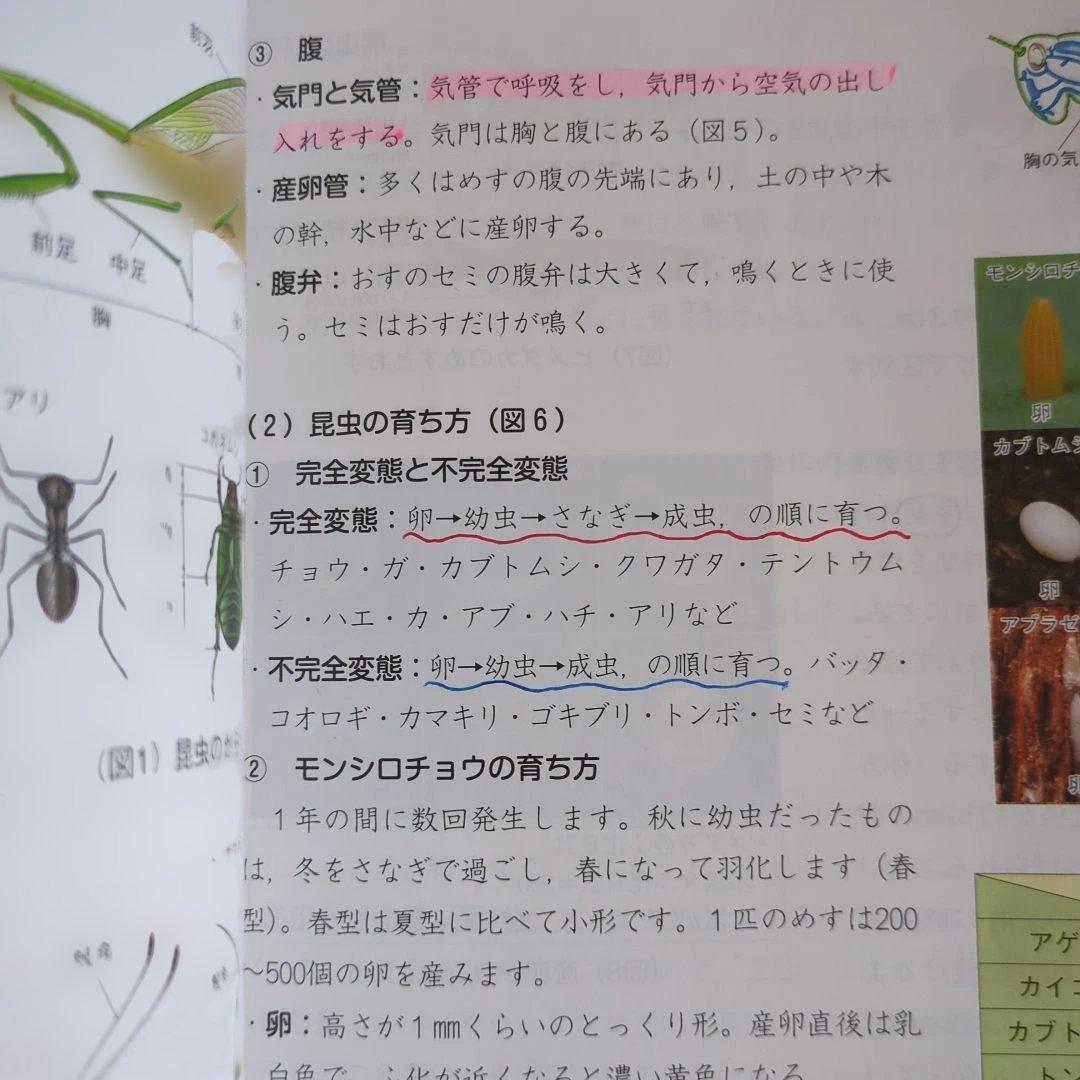 前足
中足
胸
アリ
(図1) 昆虫のから
③ 腹
・気門と気管：気管で呼吸をし，気門から空気の出し
入れをする。気門は胸と腹にある（図５）。
・産卵管：多くはめすの腹の先端にあり，土の中や木
の幹，水中などに産卵する。
・腹弁：おすのセミの腹弁は大きくて，鳴くときに使
う。セミはおすだけが鳴く。
（2）昆虫の育ち方（図６）
① 完全変態と不完全変態
・完全変態：卵→幼虫→さなぎ→成虫，の順に育つ。
チョウ・ガ・カブトムシ・クワガタ・テントウム
シ・ハエ・カ・アブ・ハチ・アリなど
・不完全変態：卵→幼虫→成虫，の順に育つ。バッタ・
コオロギ・カマキリ・ゴキブリ・トンボ・セミなど
② モンシロチョウの育ち方
１年の間に数回発生します。秋に幼虫だったもの
は，冬をさなぎで過ごし，春になって羽化します（春
型）。春型は夏型に比べて小形です。１匹のめすは200
～500個の卵を産みます。
・卵：高さが１mmくらいのとっくり形。産卵直後は乳
白色で，ふ化が近くなると濃い黄色になる
胸の気
モンシロチ
卵
カブトムシ
卵
アブラゼ
卵
アゲ
カイコ
カブト
トン